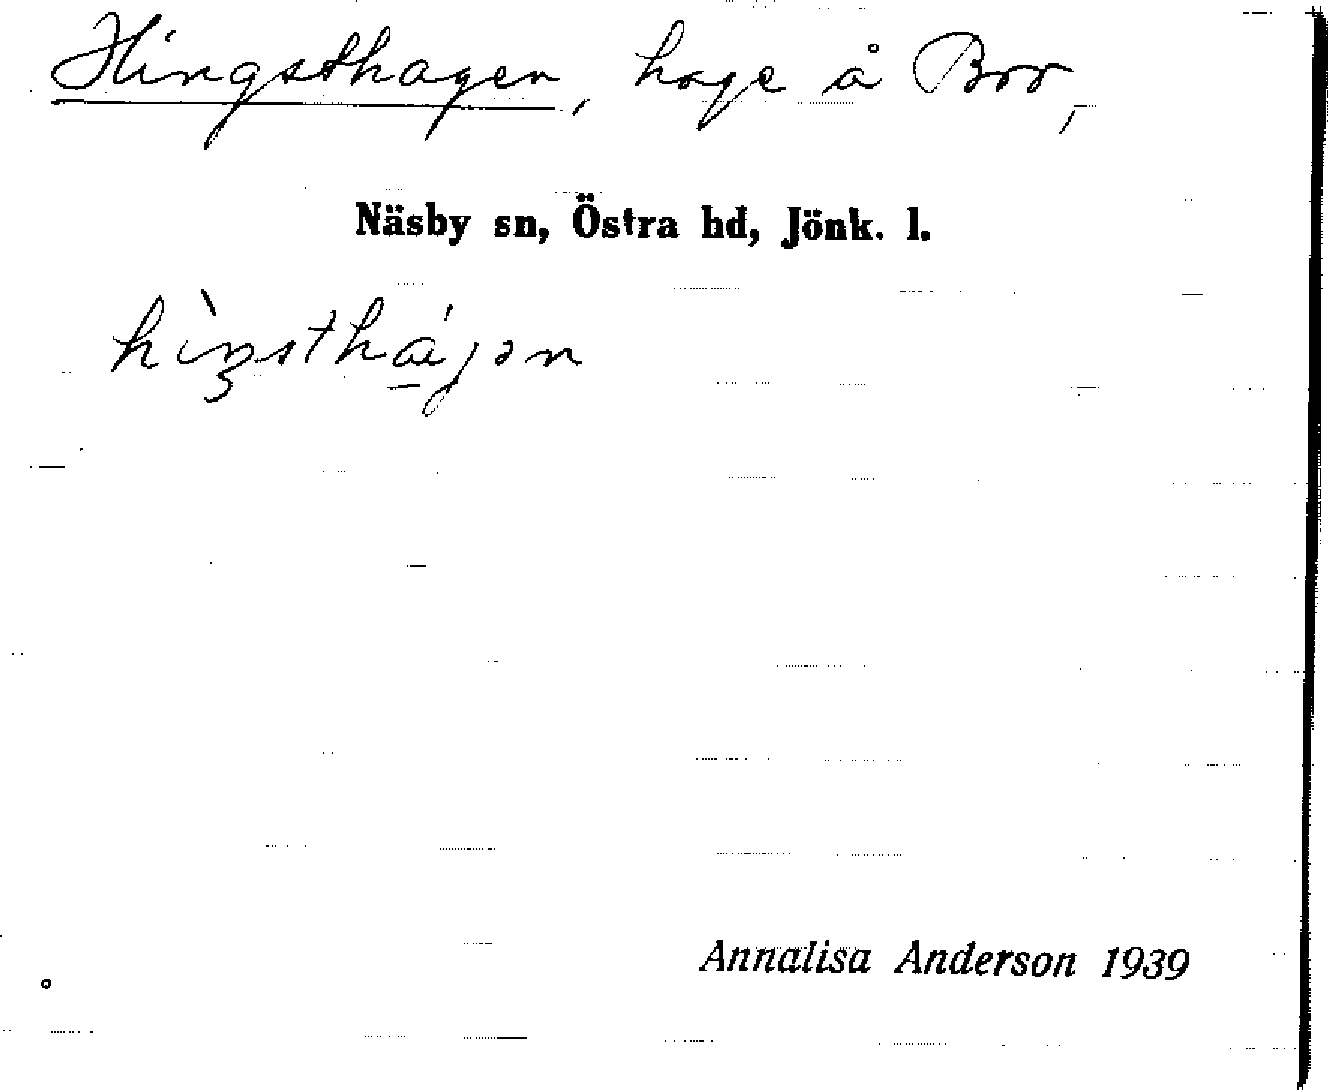 Hingsthagen, hage å Bro,
Näsby sn, Östra hd, Jönk. l.
hìŋsthá̱jən
Annalisa Anderson 1939